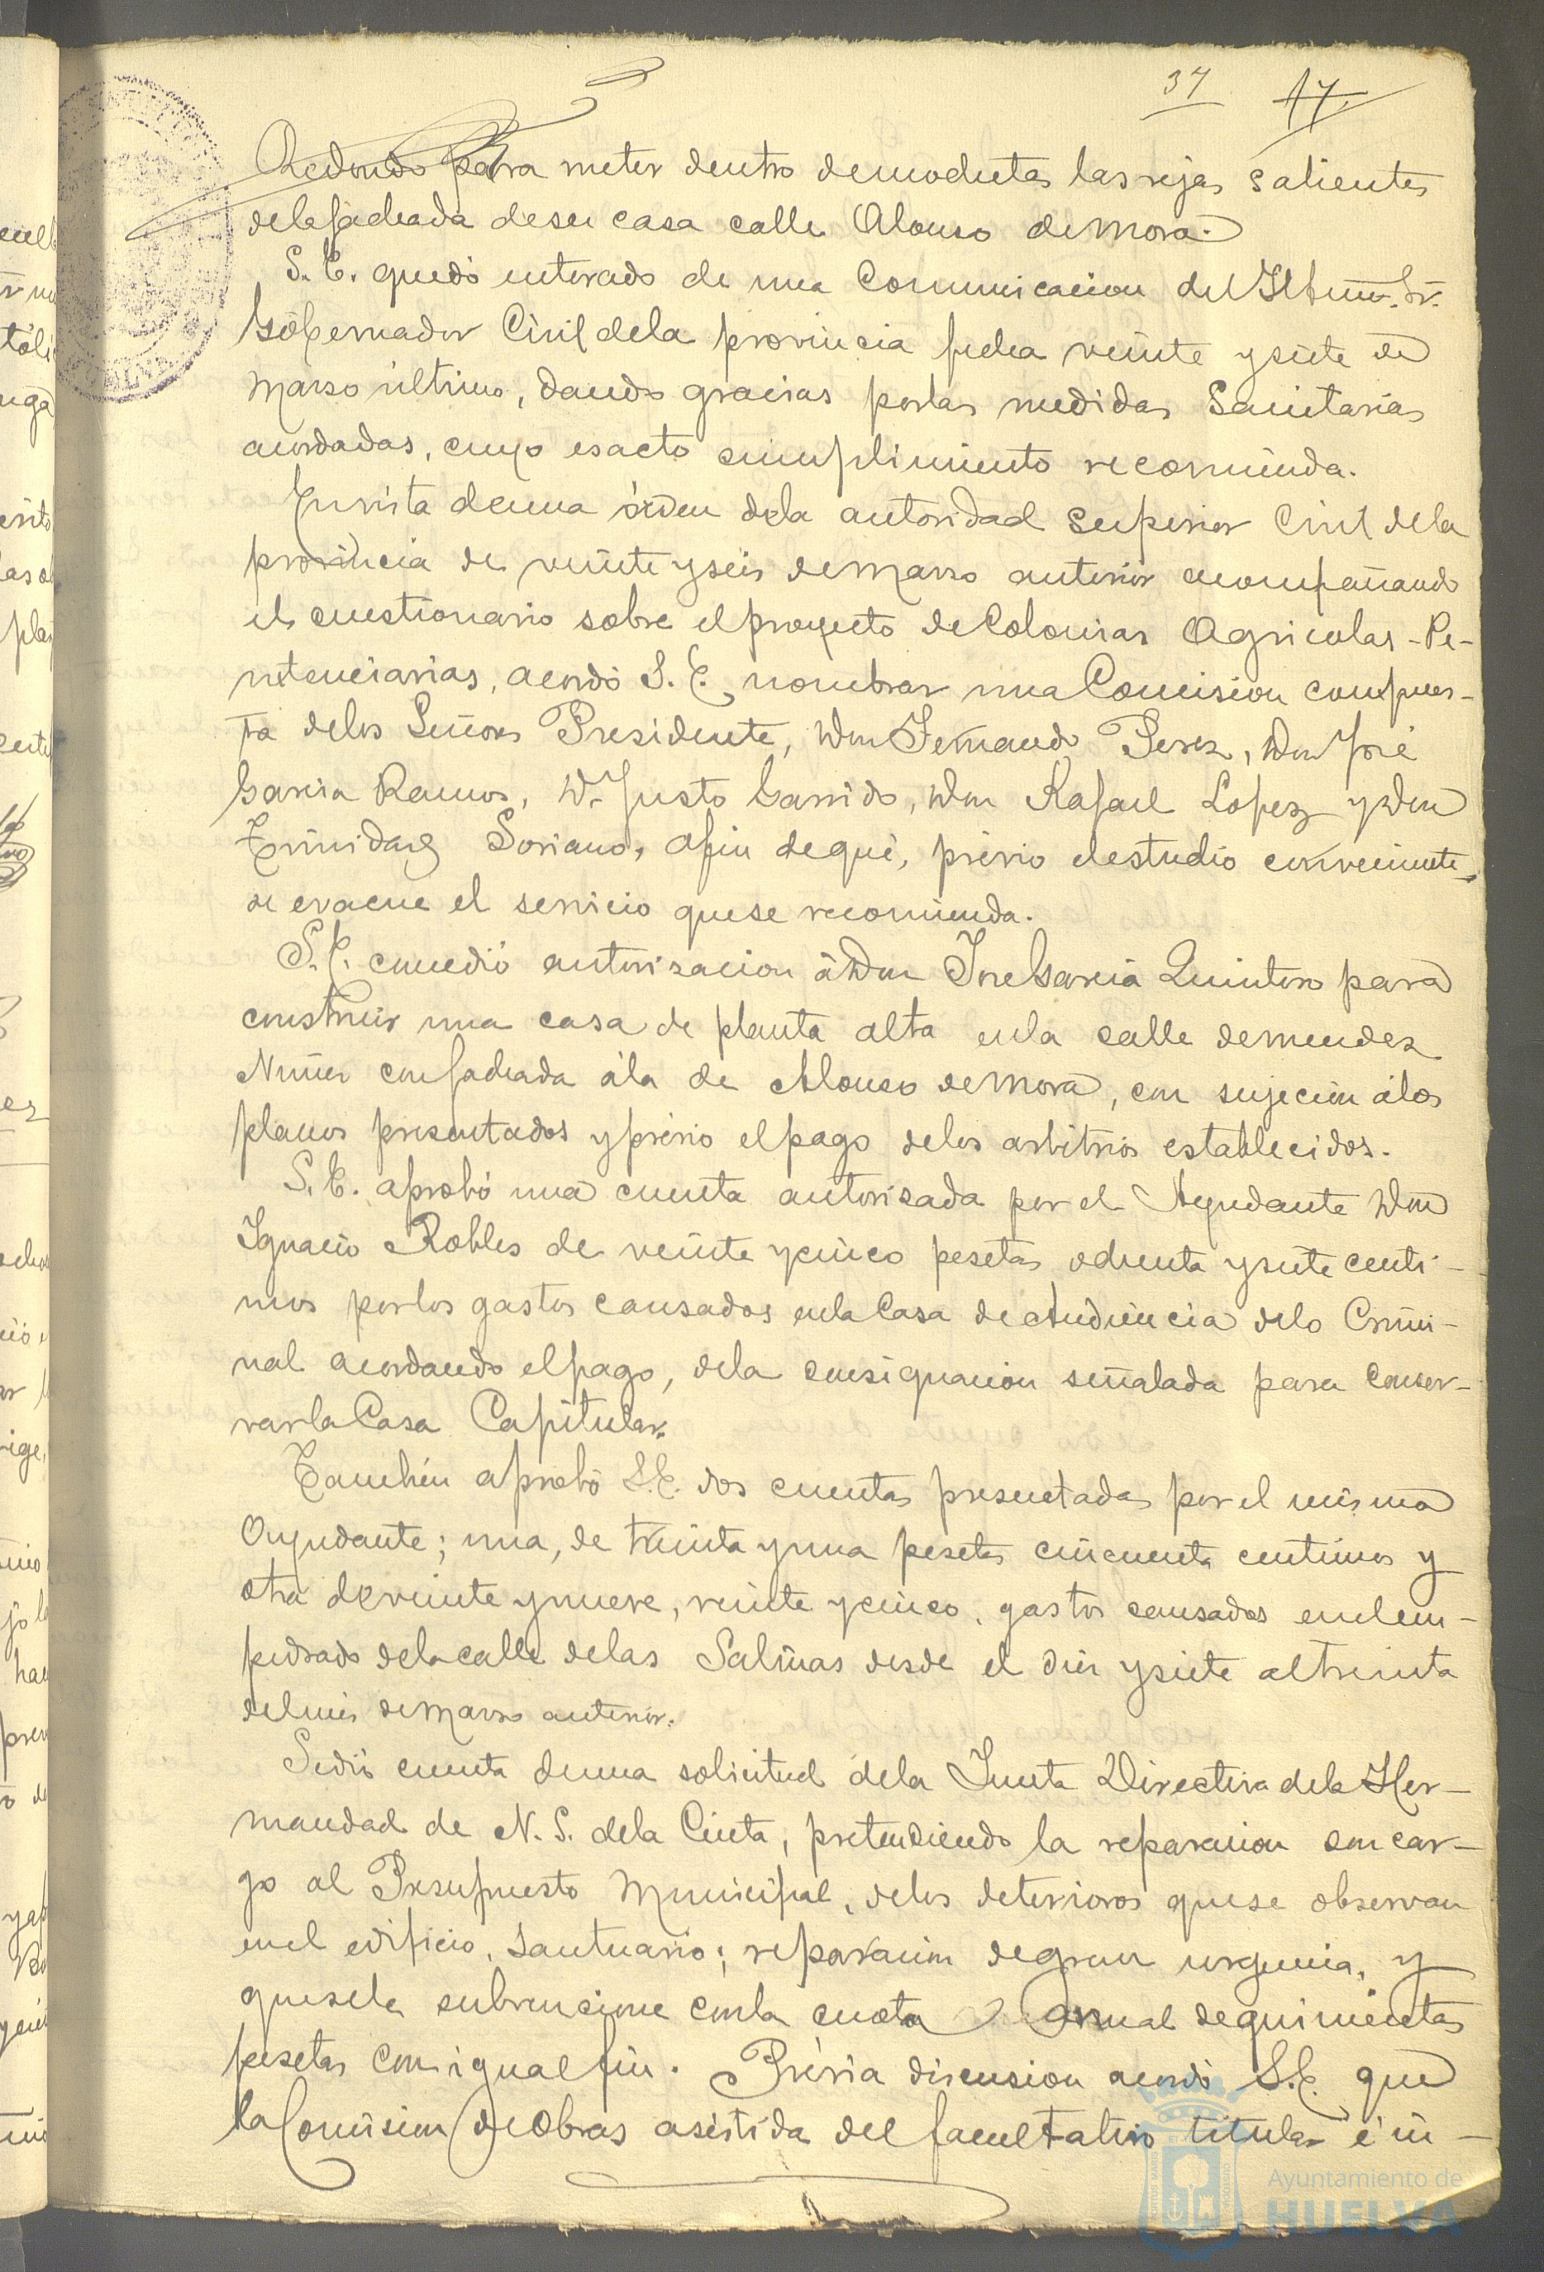 37 17
Redondo para meter dentro de mochetas las rejas salientes
de la fachada de su casa calle Alonso de Mora.
S. E. quedó enterado de una Comunicacion del Iltmo. Sr.
Gobernador Civil de la provincia fecha veinte y siete de
Marzo último, dando gracias por las medidas Sanitarias
acordadas, cuyo esacto cumplimiento recomienda.
En vista de una órden de la autoridad Superior Civil de la
provincia de veinte y seis de Marzo anterior acompañando
el cuestionario sobre el proyecto de Colonias Agricolas-Pe-
nitenciarias, acordó S. E. nombrar una Comision compues-
ta de los Señores Presidente, Don Fernando Perez, Don José
Garcia Ramos, D. Justo Garrido, Don Rafael Lopez y Don
Trinidad Soriano, afin de que, prévio el estudio conveniente,
se evacue el servicio que se recomienda.
S. E. concedió autorizacion á Don José Garcia Quintero para
construir una casa de planta alta en la calle de Mendez
Nuñez con fachada á la de Alonso de Mora, con sujecion á los
planos presentados y prévio el pago de los arbitrios establecidos.
S. E. aprobó una cuenta autorizada por el Ayudante Don
Ignacio Robles de veinte y cinco pesetas ochenta y siete centi-
mos por los gastos causados en la Casa de Audiencia de lo Crimi-
nal acordando el pago, de la consignacion señalada para conser-
var la Casa Capitular.
Tambien aprobó S. E. dos cuentas presentadas por el mismo
Ayudante; una, de treinta y una pesetas cincuenta centimos y
otra de veinte y nueve, veinte y cinco, gastos causados en el em-
pedrado de la calle de las Salinas desde el diez y siete al treinta
del mes de Marzo anterior.
Se dió cuenta de una solicitud de la Junta Directiva de la Her-
mandad de N. S. de la Cinta, pretendiendo la reparacion con car-
go al Presupuesto Municipal, de los deterioros que se observan
en el edificio, Santuario; reparacion de gran urgencia, y
que se le subvencione con la cuota anual de quinientas
pesetas con igual fin. Prévia discusion acordó S. E. que
la Comision de Obras asistida del facultativo titular é in-
Ayuntamiento de
HUELVA